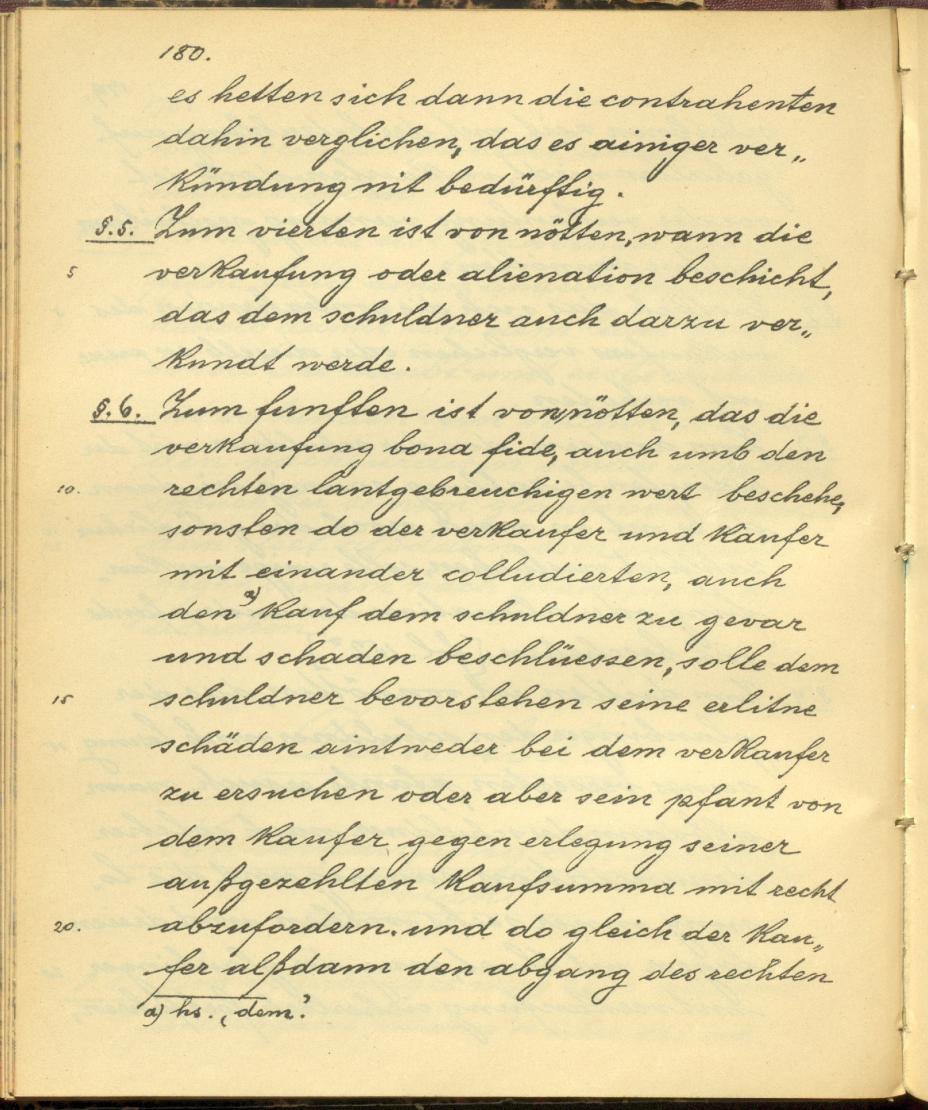 180.
es hetten sich dann die contrahenten
dahin verglichen, das es ainiger ver„
kündung nit bedürftig.
§.5. Zum vierten ist von nötten, wann die
5 verkaufung oder alienation beschicht,
das dem schuldner auch darzu ver„
kundt werde.
§.6. Zum funften ist von nötten, das die
verkaufung bona fide, auch umb den
10. rechten lantgebreuchigen wert beschehe,
sonsten do der verkaufer und kaufer
mit einander colludierten, auch
den a) kauf dem schuldner zu gevar
und schaden beschlüessen, solle dem
15 schuldner bevorstehen seine erlitne
schäden aintweder bei dem verkaufer
zu ersuchen oder aber sein pfant von
dem kaufer gegen erlegung seiner
außgezehlten kaufsumma mit recht
20. abzufordern. und do gleich der kau„
fer alßdann den abgang des rechten
a) hs. ‚dem’